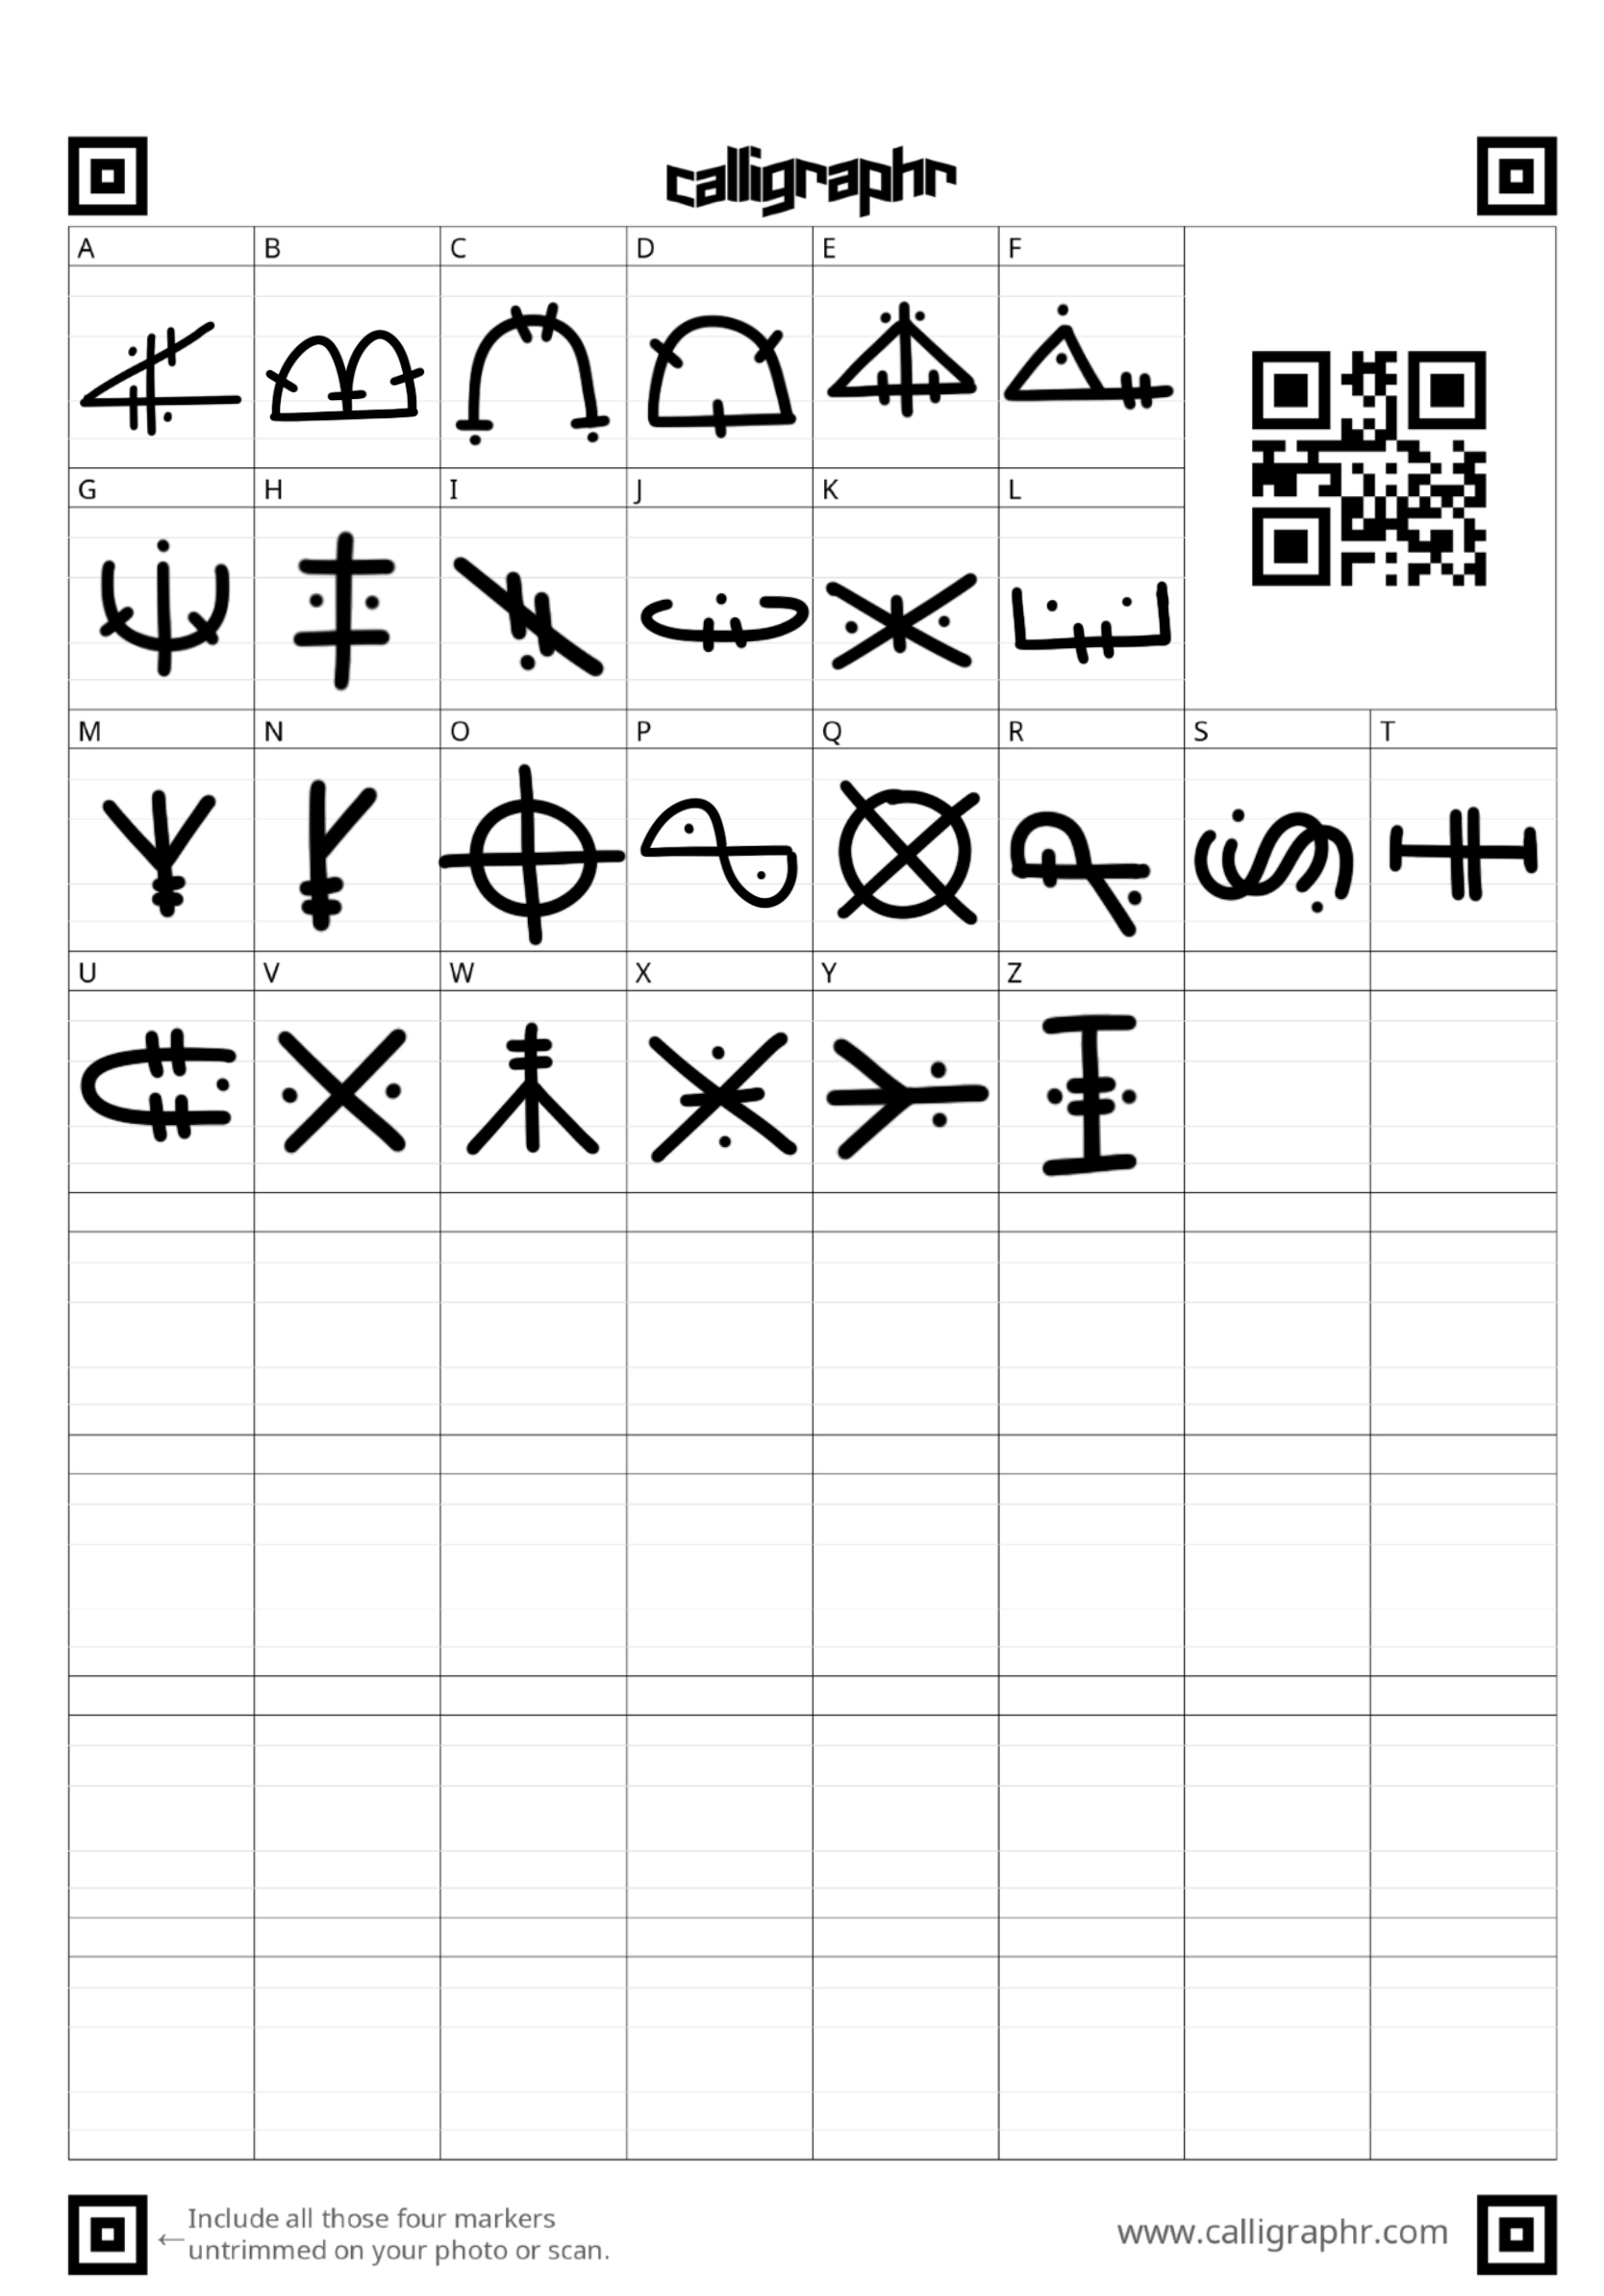 calligraphr
A B C D E F
G H I J K L
M N O P Q R S T
U V W X Y Z
Include all those four markers
← untrimmed on your photo or scan.
www.calligraphr.com